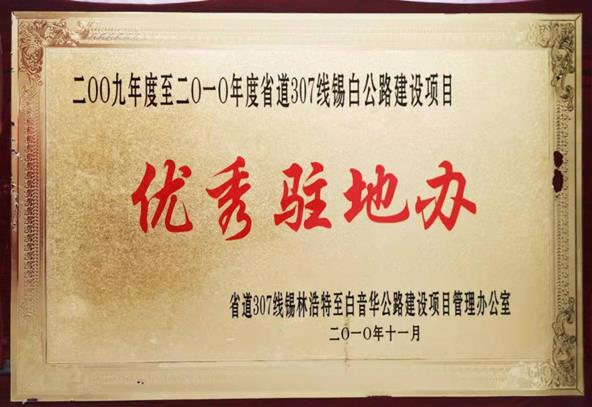 二〇〇九年度至二〇一〇年度省道307线锡白公路建设项目
优秀驻地办
省道307线锡林浩特至白音华公路建设项目管理办公室
二〇一〇年十一月